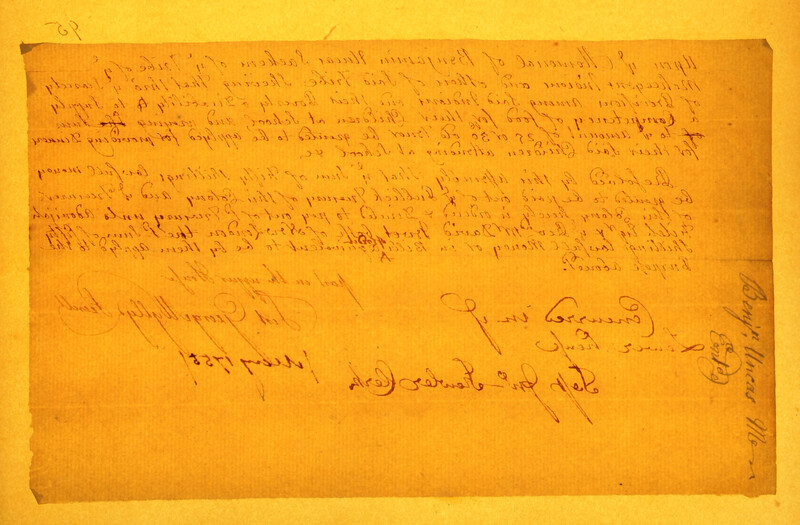 95
Upon yᵉ Memorial of Benjamin Uncas Sachem of yᵉ Tribe of yᵉ
Mohegan Indians and others of said Tribe Shewing that thro' yᵉ Scarcity
of Provisions among said Indians and their Poverty & Inability to supply
a Competency of food for their Children at School and moving
to yᵉ amount of 25 or 30£ old Tenor be granted to be applyed for providing Dinners
for their said Children attending at School &c.
Resolved by this Assembly that yᵉ Sum of Fifty Shillings lawfull money
be granted to be paid out of yᵉ Publick Treasury of this Colony and yᵉ Treasurer
of this Colony hereby is ordered & Directed to pay out of yᵉ Treasury unto Adonijah
Fitch Esqʳ & yᵉ Revᵈ Mʳ David Jewet both of New London the Sum of Fifty
Shillings lawfull Money or in Bills equivalent to be by them applyed to the
Purpose above sᵈ
past in the upper House
Test George Wyllys Secretʳʸ
Concurred in yᵉ
Lower House
Test Jnᵒ Fowler Clerk
May 1755
Benjᵃ Uncas Mem
Copᵈ